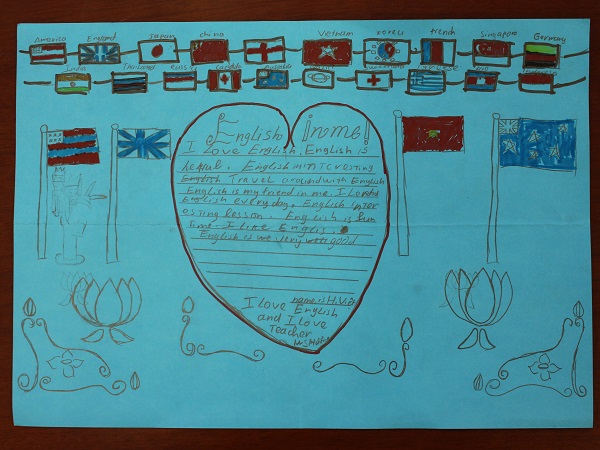 America England Japan china Vietnam Korea french Singapore Germany
India Thailand Russia Canada
English in me!
I Love English. English is
helful. English is interesting
English Travel around with English
English is my friend in me. I Love
English everyday. English inter
esting lesson. English is fun
time. I like English.
English is very very good
name is H.V.
I Love English
and I Love
Teacher